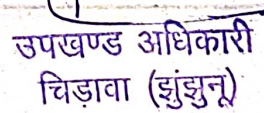 उपखण्ड अधिकारी
चिड़ावा (झुंझुनू)